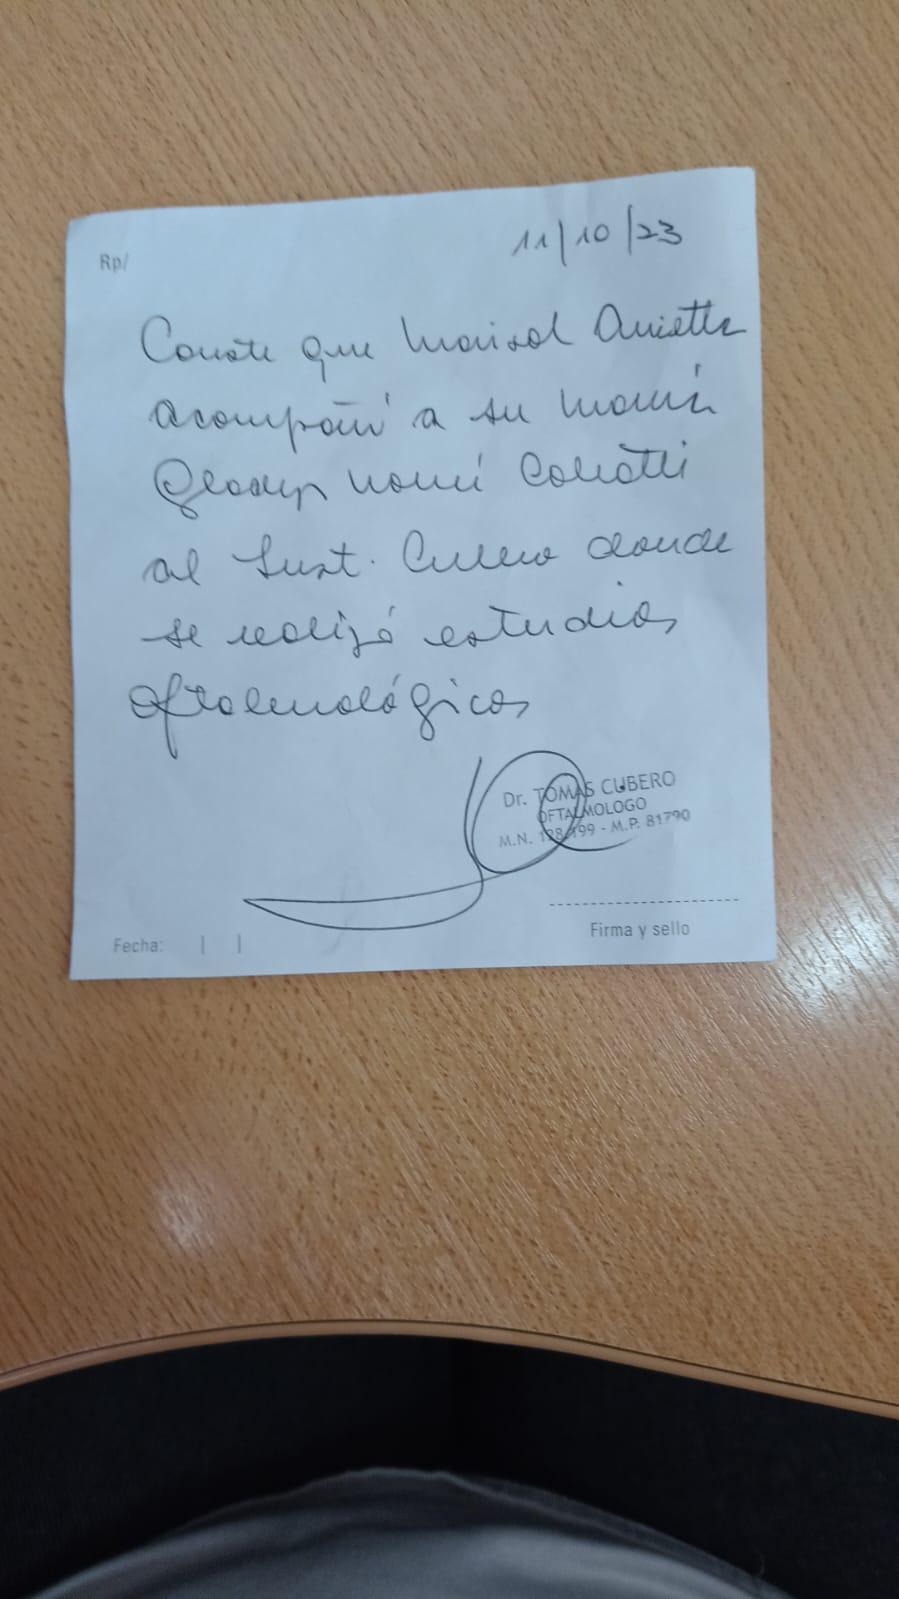 11/10/23
Rp/
Conste que Marisol
acompañó a su mamá
Gladys Noemí
al Inst. Cubero donde
se realizó estudios
oftalmológicos
Dr. TOMAS CUBERO
OFTALMOLOGO
M.N. 128.199 - M.P. 81790
Firma y sello
Fecha: | |